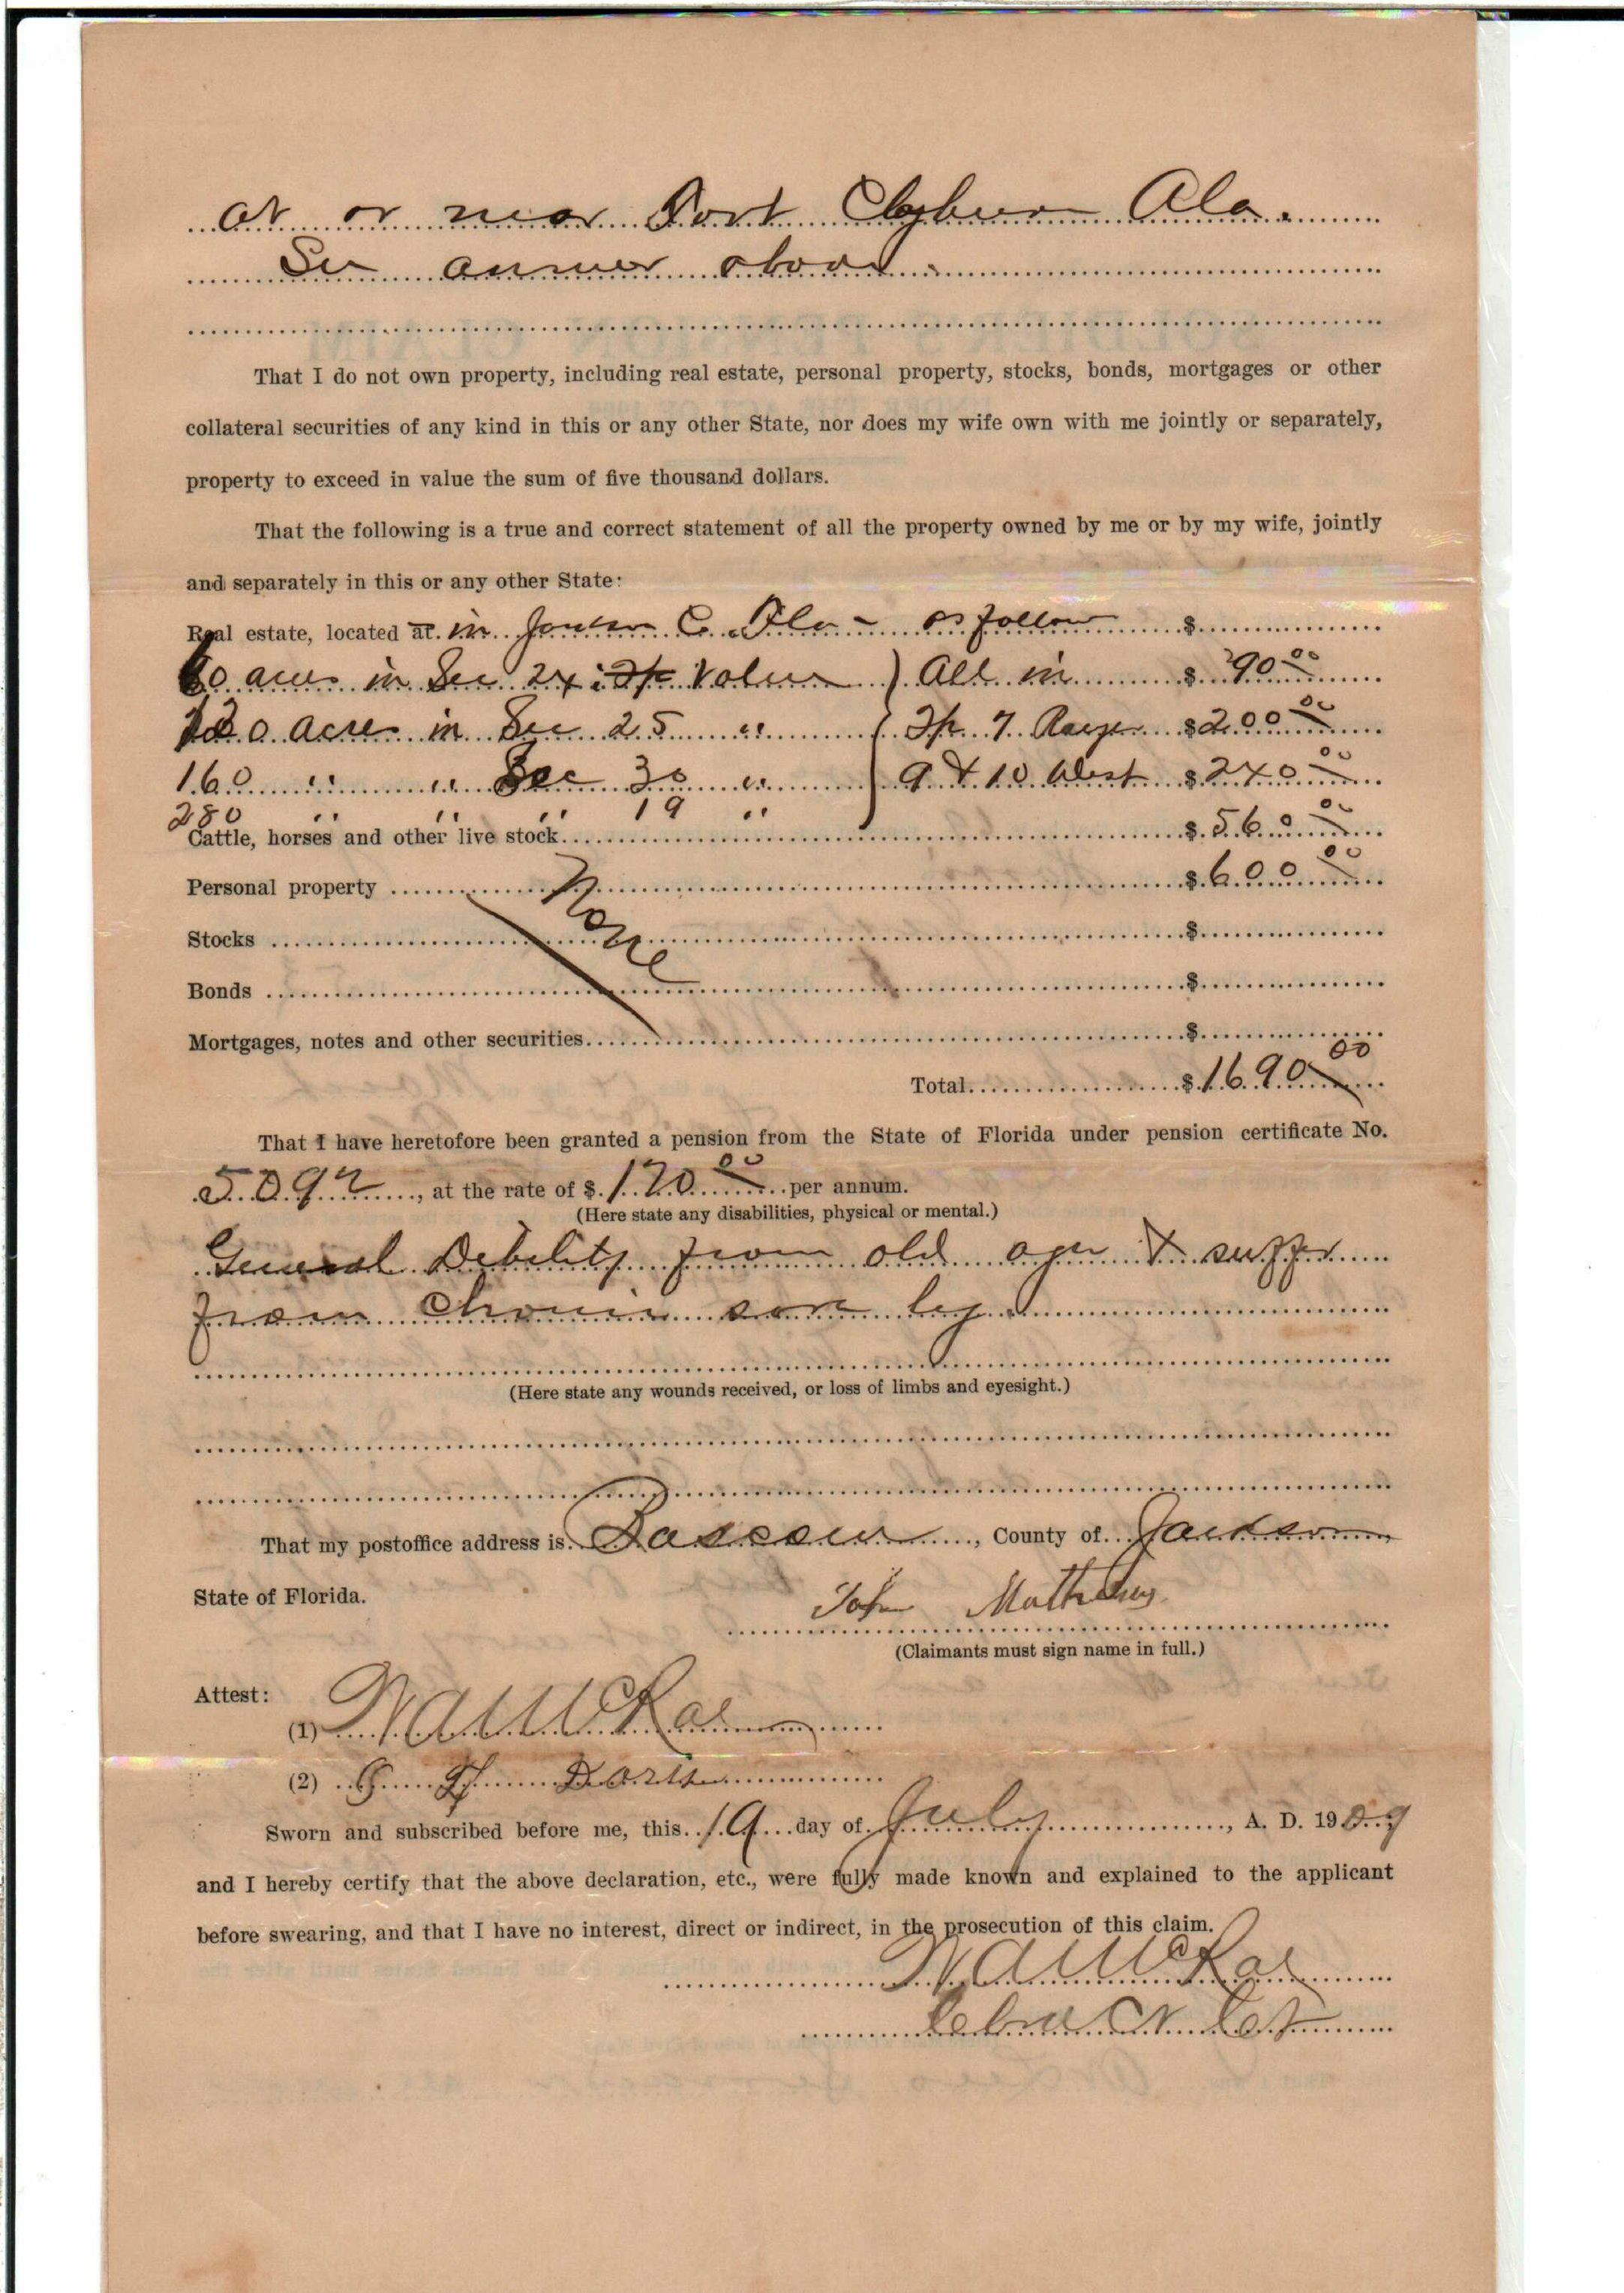 at or near Fort Clybur Ala.
See answer above.
That I do not own property, including real estate, personal property, stocks, bonds, mortgages or other
collateral securities of any kind in this or any other State, nor does my wife own with me jointly or separately,
property to exceed in value the sum of five thousand dollars.
That the following is a true and correct statement of all the property owned by me or by my wife, jointly
and separately in this or any other State:
Real estate, located at in Jackson Co. Fla - as follow $
60 acres in Sec 24 : Tp Value ) All in $ 90 00
120 acres in Sec 25 " Tp 7 Range $ 200 00
160 " " Sec 30 " 9 & 10 West $ 240 00
280 " " " 19 "
Cattle, horses and other live stock $ 560 00
Personal property $ 600 00
None
Stocks $
Bonds $
Mortgages, notes and other securities $
Total $ 1690 00
That I have heretofore been granted a pension from the State of Florida under pension certificate No.
5092, at the rate of $ 120 00 per annum.
(Here state any disabilities, physical or mental.)
General Debility from old age & suffer
from Chronic sore leg
(Here state any wounds received, or loss of limbs and eyesight.)
That my postoffice address is Bascom, County of Jackson,
State of Florida. John Mathews
(Claimants must sign name in full.)
Attest:
(1) W A McRae
(2)
Sworn and subscribed before me, this 19 day of July, A. D. 1909
and I hereby certify that the above declaration, etc., were fully made known and explained to the applicant
before swearing, and that I have no interest, direct or indirect, in the prosecution of this claim.
W A McRae